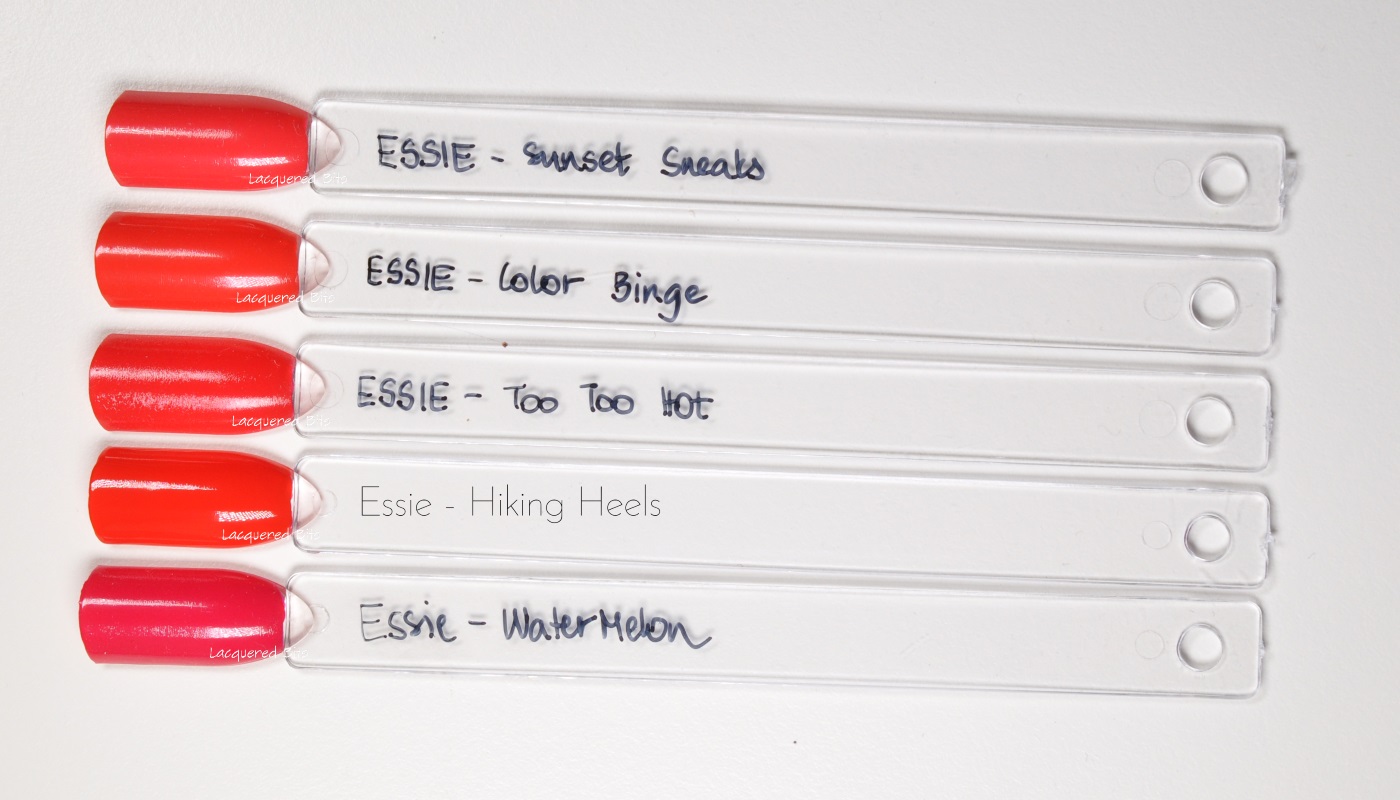 ESSIE - Sunset Sneaks
Lacquered Bits
ESSIE - Color Binge
Lacquered Bits
ESSIE - Too Too Hot
Lacquered Bits
Essie - Hiking Heels
Lacquered Bits
Essie - WaterMelon
Lacquered Bits